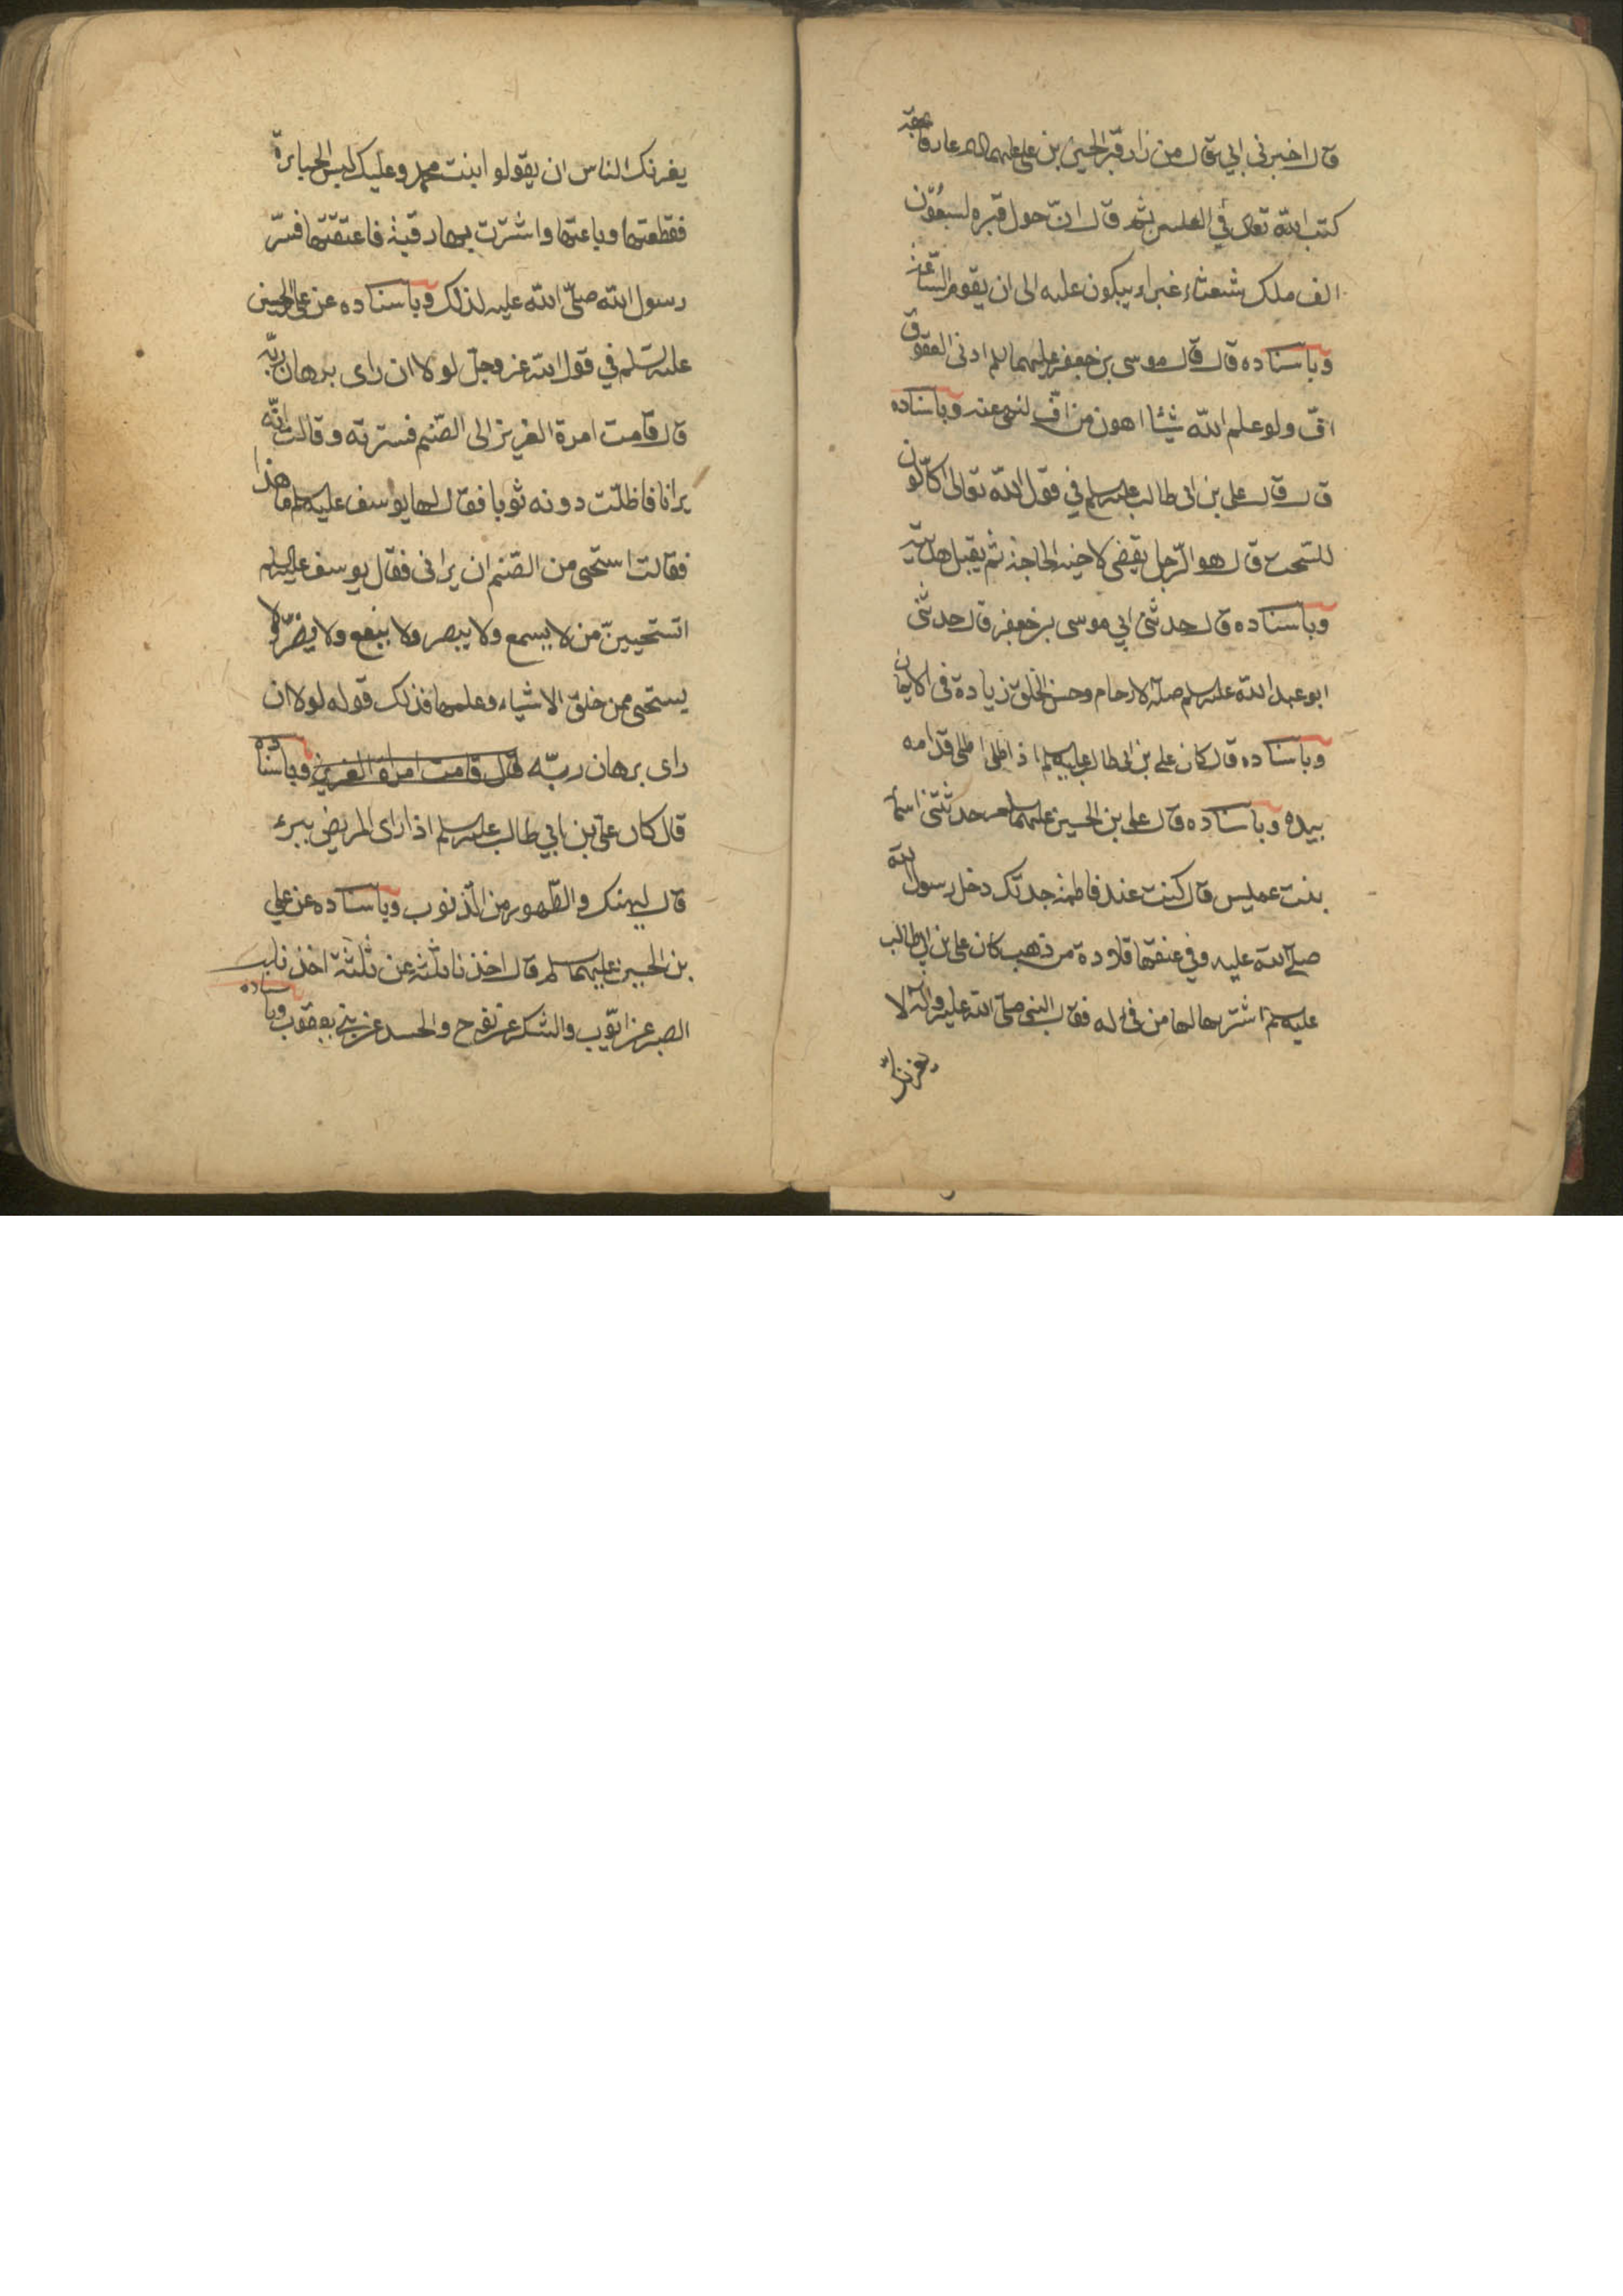 قال اخبرنى ابي قال من زار قبر الحسين بن على عليهما السلام عارفا بحقه
كتب الله تعالى في العليين ثم قال ان حول قبره لسبعون
الف ملك شعثاء غبراء يبكون عليه الى ان يقوم الساعة
وباسناده قال قال موسى بن جعفر عليهما السلم ادنى العقوق
اف ولو علم الله شيئا اهون من اف لنهى عنه وباسناده
قال قال على بن ابى طالب عليه السلم في قول الله تعالى اكالون
للسحت قال هو الرجل يقضى لاخيه الحاجة ثم يقبل هديته
وباسناده قال حدثنى ابي موسى بن جعفر قال حدثنى
ابو عبد الله عليه السلم صلة الارحام وحسن الخلق زيادة فى الايمان
وباسناده قال كان على بن ابى طالب عليه السلم اذا طلى اطلى قدامه
بيده وباسناده قال على بن الحسين عليهما السلم حدثتنى اسما
بنت عميس قال كنت عند فاطمة جدتك دخل رسول الله
صلى الله عليه وفي عنقها قلادة من ذهب كان على بن ابي طالب
عليه السلم اشترها لها من فئ له فقال النبى صلى الله عليه واله لا
يغرنك
يغرنك الناس ان يقولو ابنت محمد وعليك لبس الجبابرة
فقطعتها وباعتها واشترت بها رقبة فاعتقتها فسر
رسول الله صلى الله عليه لذلك وباسناده عن على الحسين
عليه السلم في قول الله عز وجل لولا ان راى برهان ربه
قال قامت امرة العزيز الى الصنم فسترته وقالت انه
يرانا فاظلت دونه ثوبا فقال لها يوسف عليه السلم ما هذا
فقالت استحى من الصنم ان يرانى فقال يوسف عليه السلم
اتستحيين من لا يسمع ولا يبصر ولا ينفع ولا يضر ولا
يستحى ممن خلق الاشياء وعلمها فذلك قوله لولا ان
راى برهان ربه قال قامت امراة العزيز وباسناده
قال كان على بن ابي طالب عليه السلم اذا راى المريض ببرء
قال ليهنك الطهور من الذنوب وباسناده عن علي
بن الحسين عليهما السلم قال اخذنا ثلثة عن ثلثة اخذنا
الصبر عن ايوب والشكر عن نوح والحسد عن بنى يعقوب وباسناده